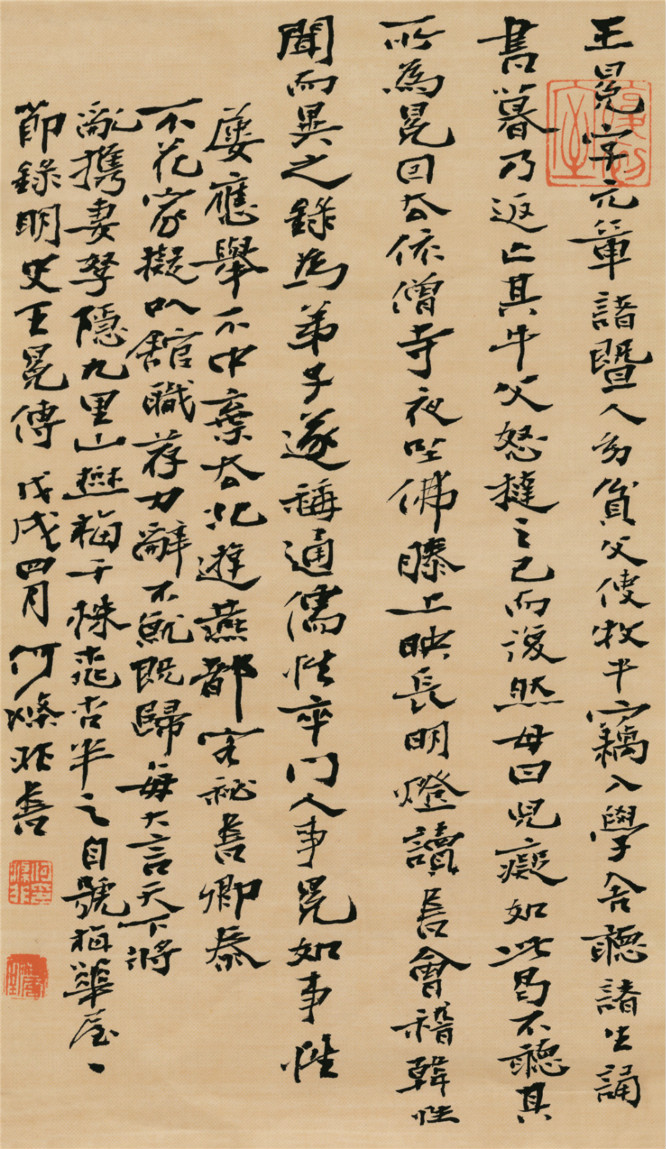 王冕字元章諸暨人幼貧父使牧牛竊入學舍聽諸生誦
書暮乃返亡其牛父怒撻之已而復然母曰兒癡如此曷不聽其
所為冕因去依僧寺夜坐佛膝上映長明燈讀書會稽韓性
聞而異之錄為弟子遂稱通儒性卒門人事冕如事性
屢應舉不中棄去北遊燕都客秘書卿泰
不花家擬以館職荐力辭不就既歸每大言天下將
亂携妻孥隱九里山樹梅千株桃杏半之自號梅華屋、
節錄明史王冕傳 戊戌四月 何滌非書